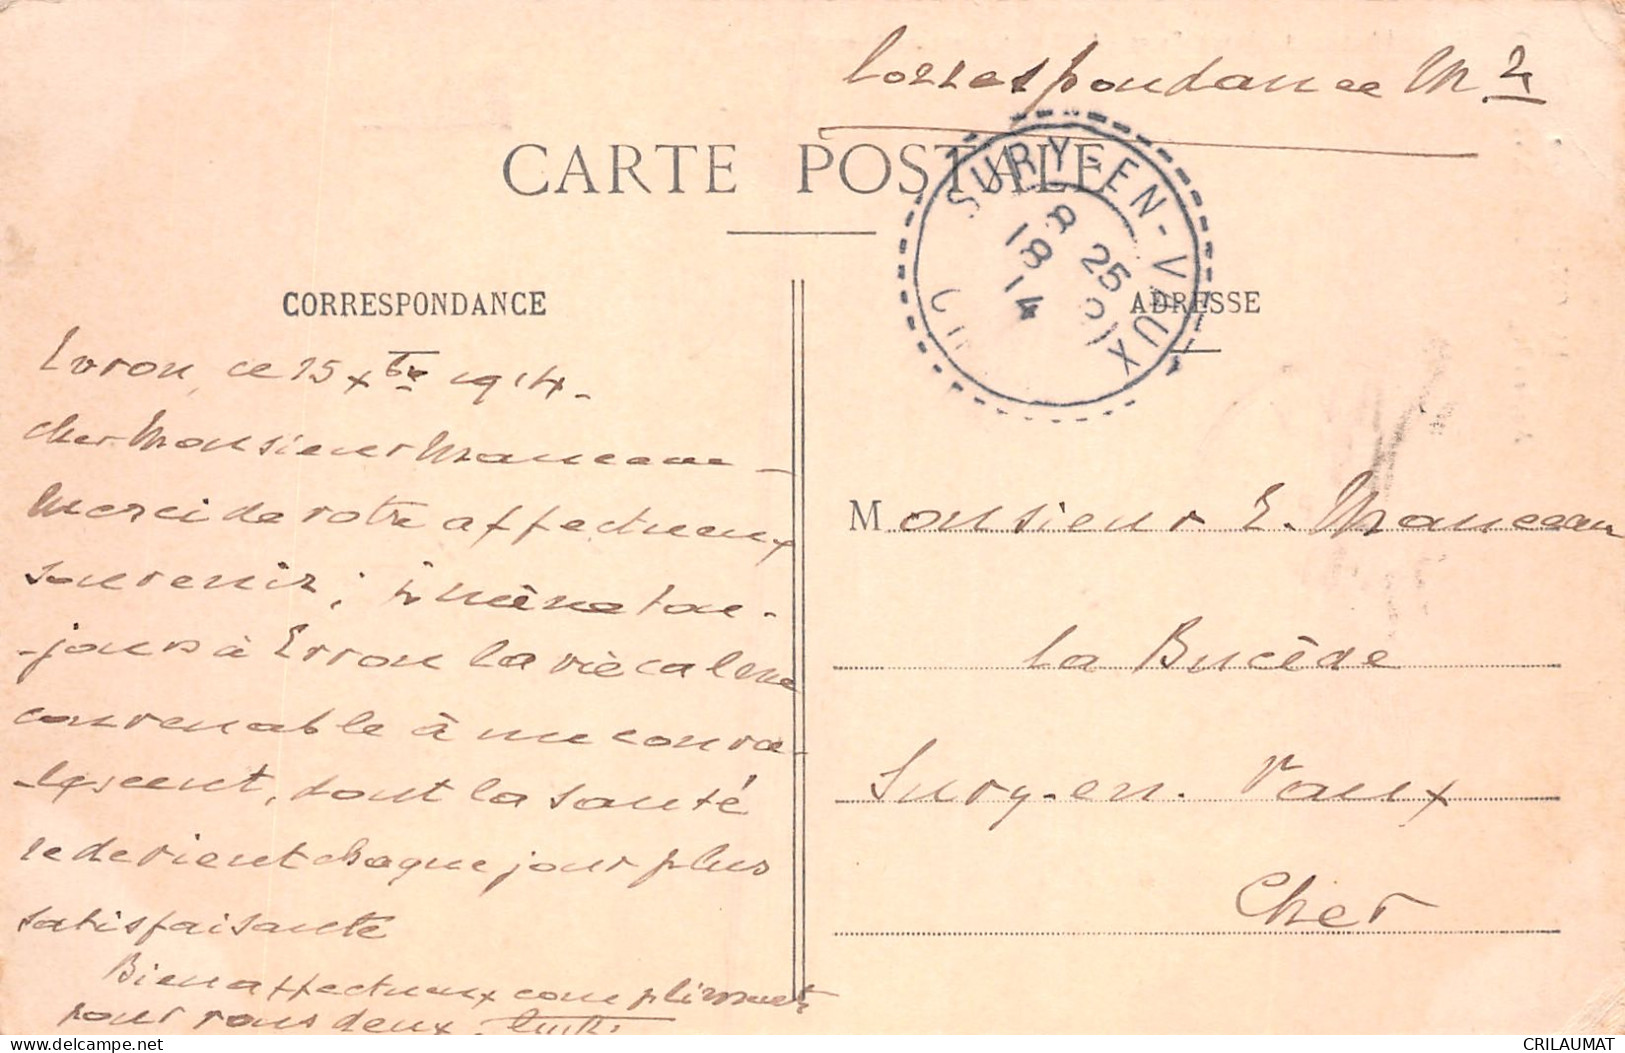 Correspondance M.re
CARTE POSTALE
SURY-EN-VAUX
8 25
18
14
CORRESPONDANCE
ADRESSE
Evron, ce 15 xbre 1914.
Cher Monsieur Manceau
Merci de votre affectueux
souvenir ; je mène tou-
-jours à Evron la vie calme
convenable à un conva-
-lescent, dont la santé
redevient chaque jour plus
satisfaisante
Bien affectueux compliments
pour vous deux.
Monsieur E. Manceau
la Bucède
Sury-en-Vaux
Cher
delcampe.net
CRILAUMAT